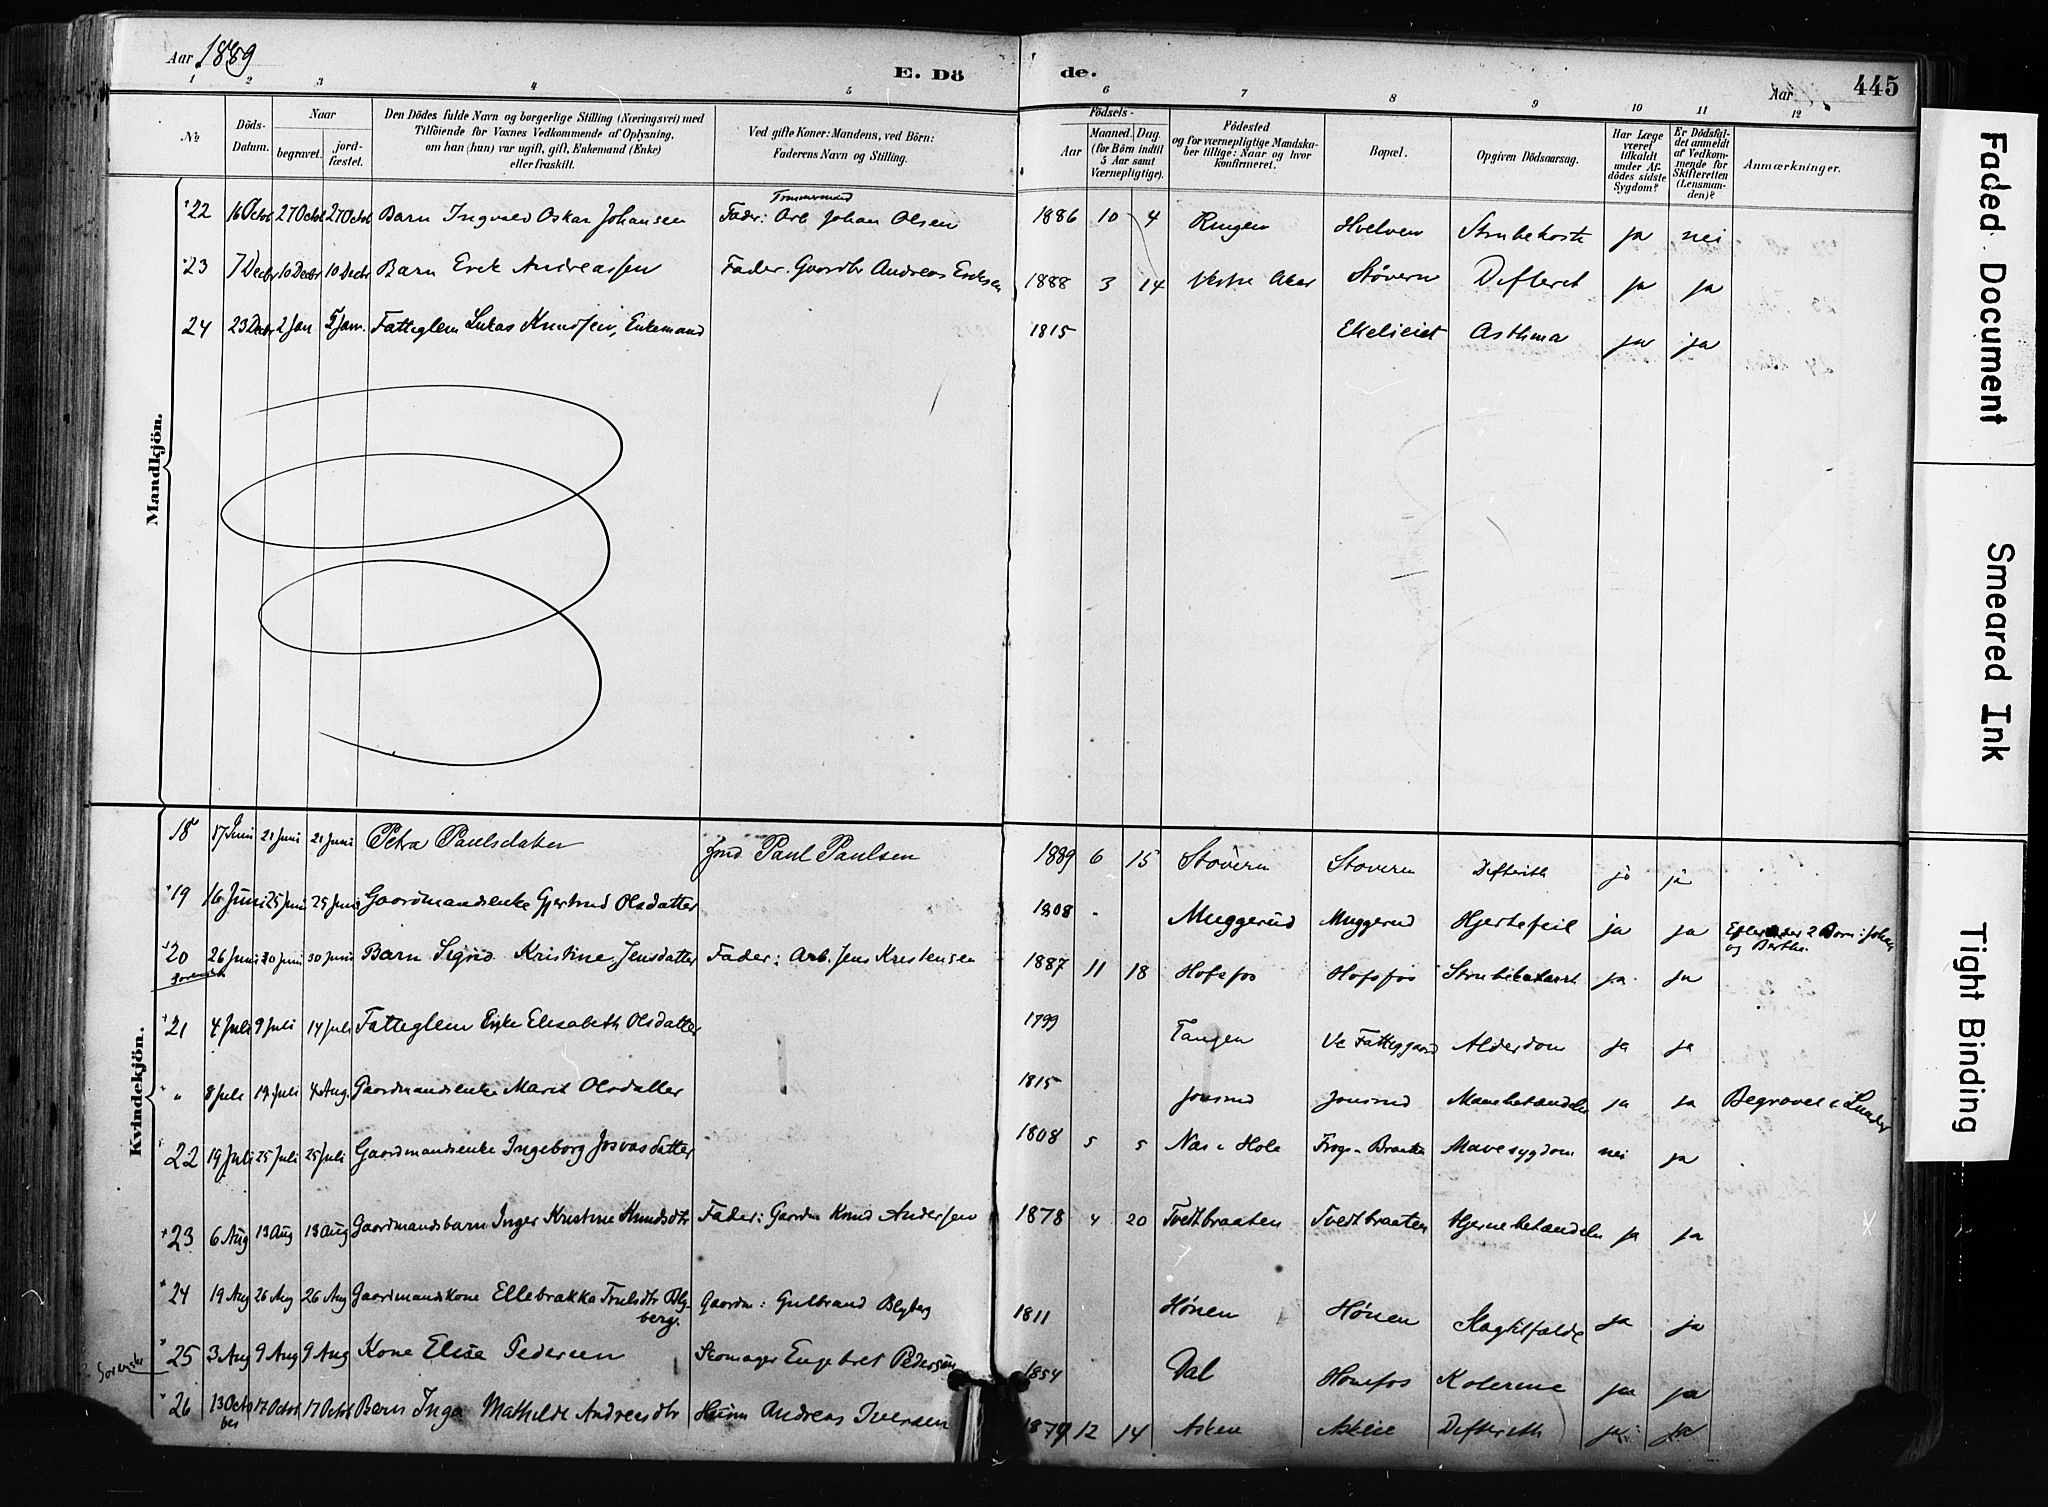 Aar 1889
E. Döde.
Aar
445
1 2 3 4 5 6 7 8 9 10 11 12
№
Döds-Datum.
Naar
begravet.
jord-fæstet.
Den Dödes fulde Navn og borgerlige Stilling (Næringsvei) med
Tilföiende for Voxnes Vedkommende af Oplysning,
om han (hun) var ugift, gift, Enkemand (Enke)
eller fraskilt.
Ved gifte Koner: Mandens, ved Börn:
Faderens Navn og Stilling.
Födsels-
Aar
Maaned. Dag.
(for Börn indtil
5 Aar samt
Værnepligtige).
Födested
og for værnepligtige Mandska-
ber tillige: Naar og hvor
konfirmeret.
Bopæl.
Opgiven Dödsaarsag.
Har Læge
været
tilkaldt
under Af-
dödes sidste
Sygdom?
Er Dödsfal-
det anmeldt
af Vedkom-
mende for
Skifteretten
(Lensman-
den)?
Anmærkninger.
Mandkjön.
22 16 Octbr 27 Octbr 27 Octbr Barn Ingvald Oskar Johansen Fader: Arb Johan Olsen 1886 10 4 Ringen Hvelven Strubehoste ja nei
23 7 Decbr 10 Decbr 10 Decbr Barn Erik Andreassen Fader. Gaardbr Andreas Eriksen 1888 3 14 Vestre Aker Støvern Defterit ja ja
24 23 Decbr 2 Jan 5 Jan. Fatteglem Lukas Knudsen, Enkemand 1815 Ekelieiet Asthma ja ja
Kvindekjön.
18 17 Juni 21 Juni 21 Juni Petra Paulsdatter Paul Paulsen 1889 6 15 Støvern Støvern Defterith ja ja
19 16 Juni 25 Juni 25 Juni Gaardmandsenke Gjertrud Olsdatter 1808 Muggerud Muggerud Hjertefeil ja ja Efterlader 2 Børn: Johan
og Berthe
20 26 Juni 30 Juni 30 Juni Barn Sigrid Kristine Jensdatter Fader: Arb. Jens Kristensen 1887 11 18 Hofsfos Hofsfos ja ja
21 4 Juli 9 Juli 14 Juli Fatteglem Enke Elisabeth Olsdatter 1799 Tangen Ve Fattiggaard Alderdom ja ja
" 8 Juli 14 Juli 4 Aug. Gaardmandsenke Marit Olsdatter 1815 Jonsrud Jonsrud ja ja Begravet i Lunder
22 19 Juli 25 Juli 25 Juli Gaardmandsenke Ingeborg Josvasdatter 1808 5 5 Næs i Hole Frogs-Braaten Mavesygdom nei ja
23 6 Aug 13 Aug 13 Aug Gaardmandsbarn Inger Kristine Knudsdtr Fader: Gaardm Knud Andersen 1878 4 20 Tvedtbraaten Tvedtbraaten Hjernebetændelse ja ja
24 19 Aug 26 Aug 26 Aug Gaardmandskone Ellebrakka Trulsdtr Bly-
berg. Gaardm: Gulbrand Blyberg 1811 Hønen Hønen Slagtilfælde ja ja
25 3 Aug 9 Aug 9 Aug Kone Elise Pedersen Skomager Engebret Pedersen 1854 Dal Hønefos Kolerine ja ja
26 13 Octo
ber 17 Octbr 17 Octbr Barn Inga Mathilde Andreasdtr Husm Andreas Iversen 1879 12 14 Asken Defterith ja ja
Faded Document
Smeared Ink
Tight Binding